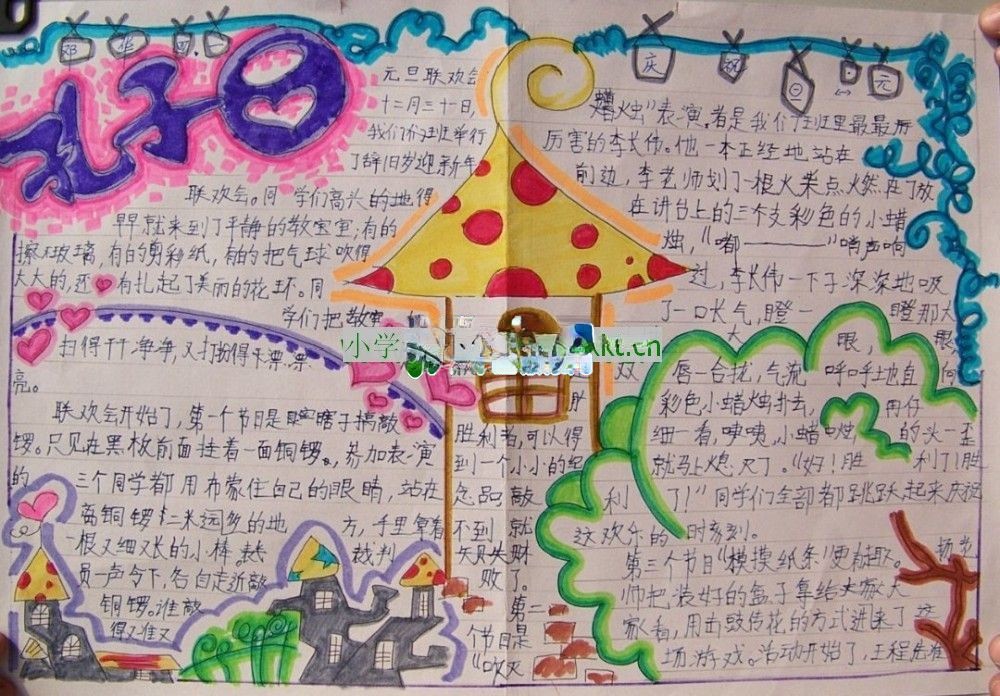 邓华四.一
庆祝⊙↔元
孔子⊙
元旦联欢会
十二月三十一日,
我们们班举行
了辞旧岁迎新年
联欢会。同学们高兴的地得
早就来到了平静的教室里;有的
擦玻璃,有的剪彩纸,有的把气球吹得
大大的,还有扎起了美丽的花环。同
学们把教室
扫得干干净净,又打扮得漂漂
亮。
联欢会开始了,第一个节目是瞎子搞敲
锣。只见在黑板前面挂着一面铜锣。参加表演
的三个同学都用布蒙住自己的眼睛,站在
离铜锣二米远的地方,手里拿着
一根又细又长的小棒。裁判
员一声令下,各自走近敲
铜锣。谁敲
得又准又
胜利者,可以得
到一个小小的纪
念品敲
不到就
失败
了。
第二
个节目是
"吹灭
蜡烛"表演。首是我们班里最最厉
厉害的李长伟。他一本正经地站在
前边,李老师划了一根火柴点燃在了放
在讲台上的三个支彩色的小蜡
烛,"嘟————"哨声响
过,李长伟一下子深深地吸
了一口长气,瞪一瞪那大
大眼,眼,
双唇一合拢,气流呼呼地直向
彩色小蜡烛扑去,再仔
细一看,咦咦,小蜡烛的头一歪
就马上熄灭了。"好!胜利了!胜
利了!"同学们全部都跳跃起来庆祝
这欢乐的时刻。
第三个节目"模摸纸条"更有趣。杨老
师把装好的盒子拿给大家大
家看,用击鼓传花的方式进来了这
场游戏。活动开始了,王程先准
小学
.cn